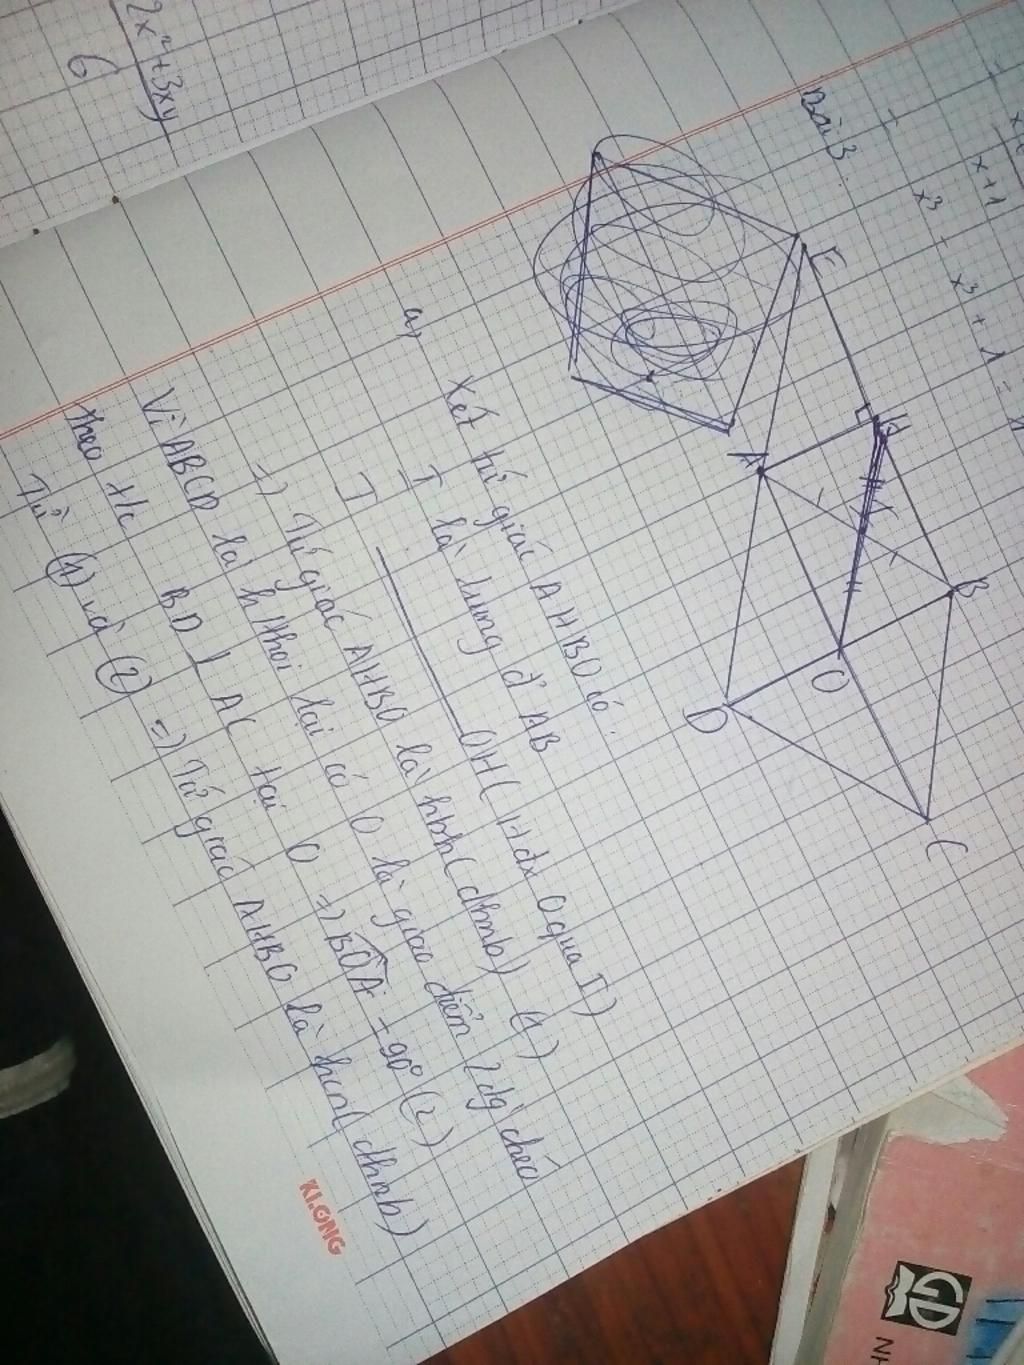 2x²+3xy
6
x+1
x³ -
x³ + 1 =
Bài 3
E
H
B
A
I
O
D
C
a)
Xét tứ giác AHBO có
I là trung đ' AB
I OH ( H đx O qua I )
=) Tứ giác AHBO là hbh ( dhnb ) (1)
Vì ABCD là h thoi lại có O là giao điểm 2 đg' chéo
theo t/c BD ⊥ AC tại O =) BOA = 90° (2)
Từ (1) và (2) =) Tứ giác AHBO là hcn ( dhnb )
KLONG
GD